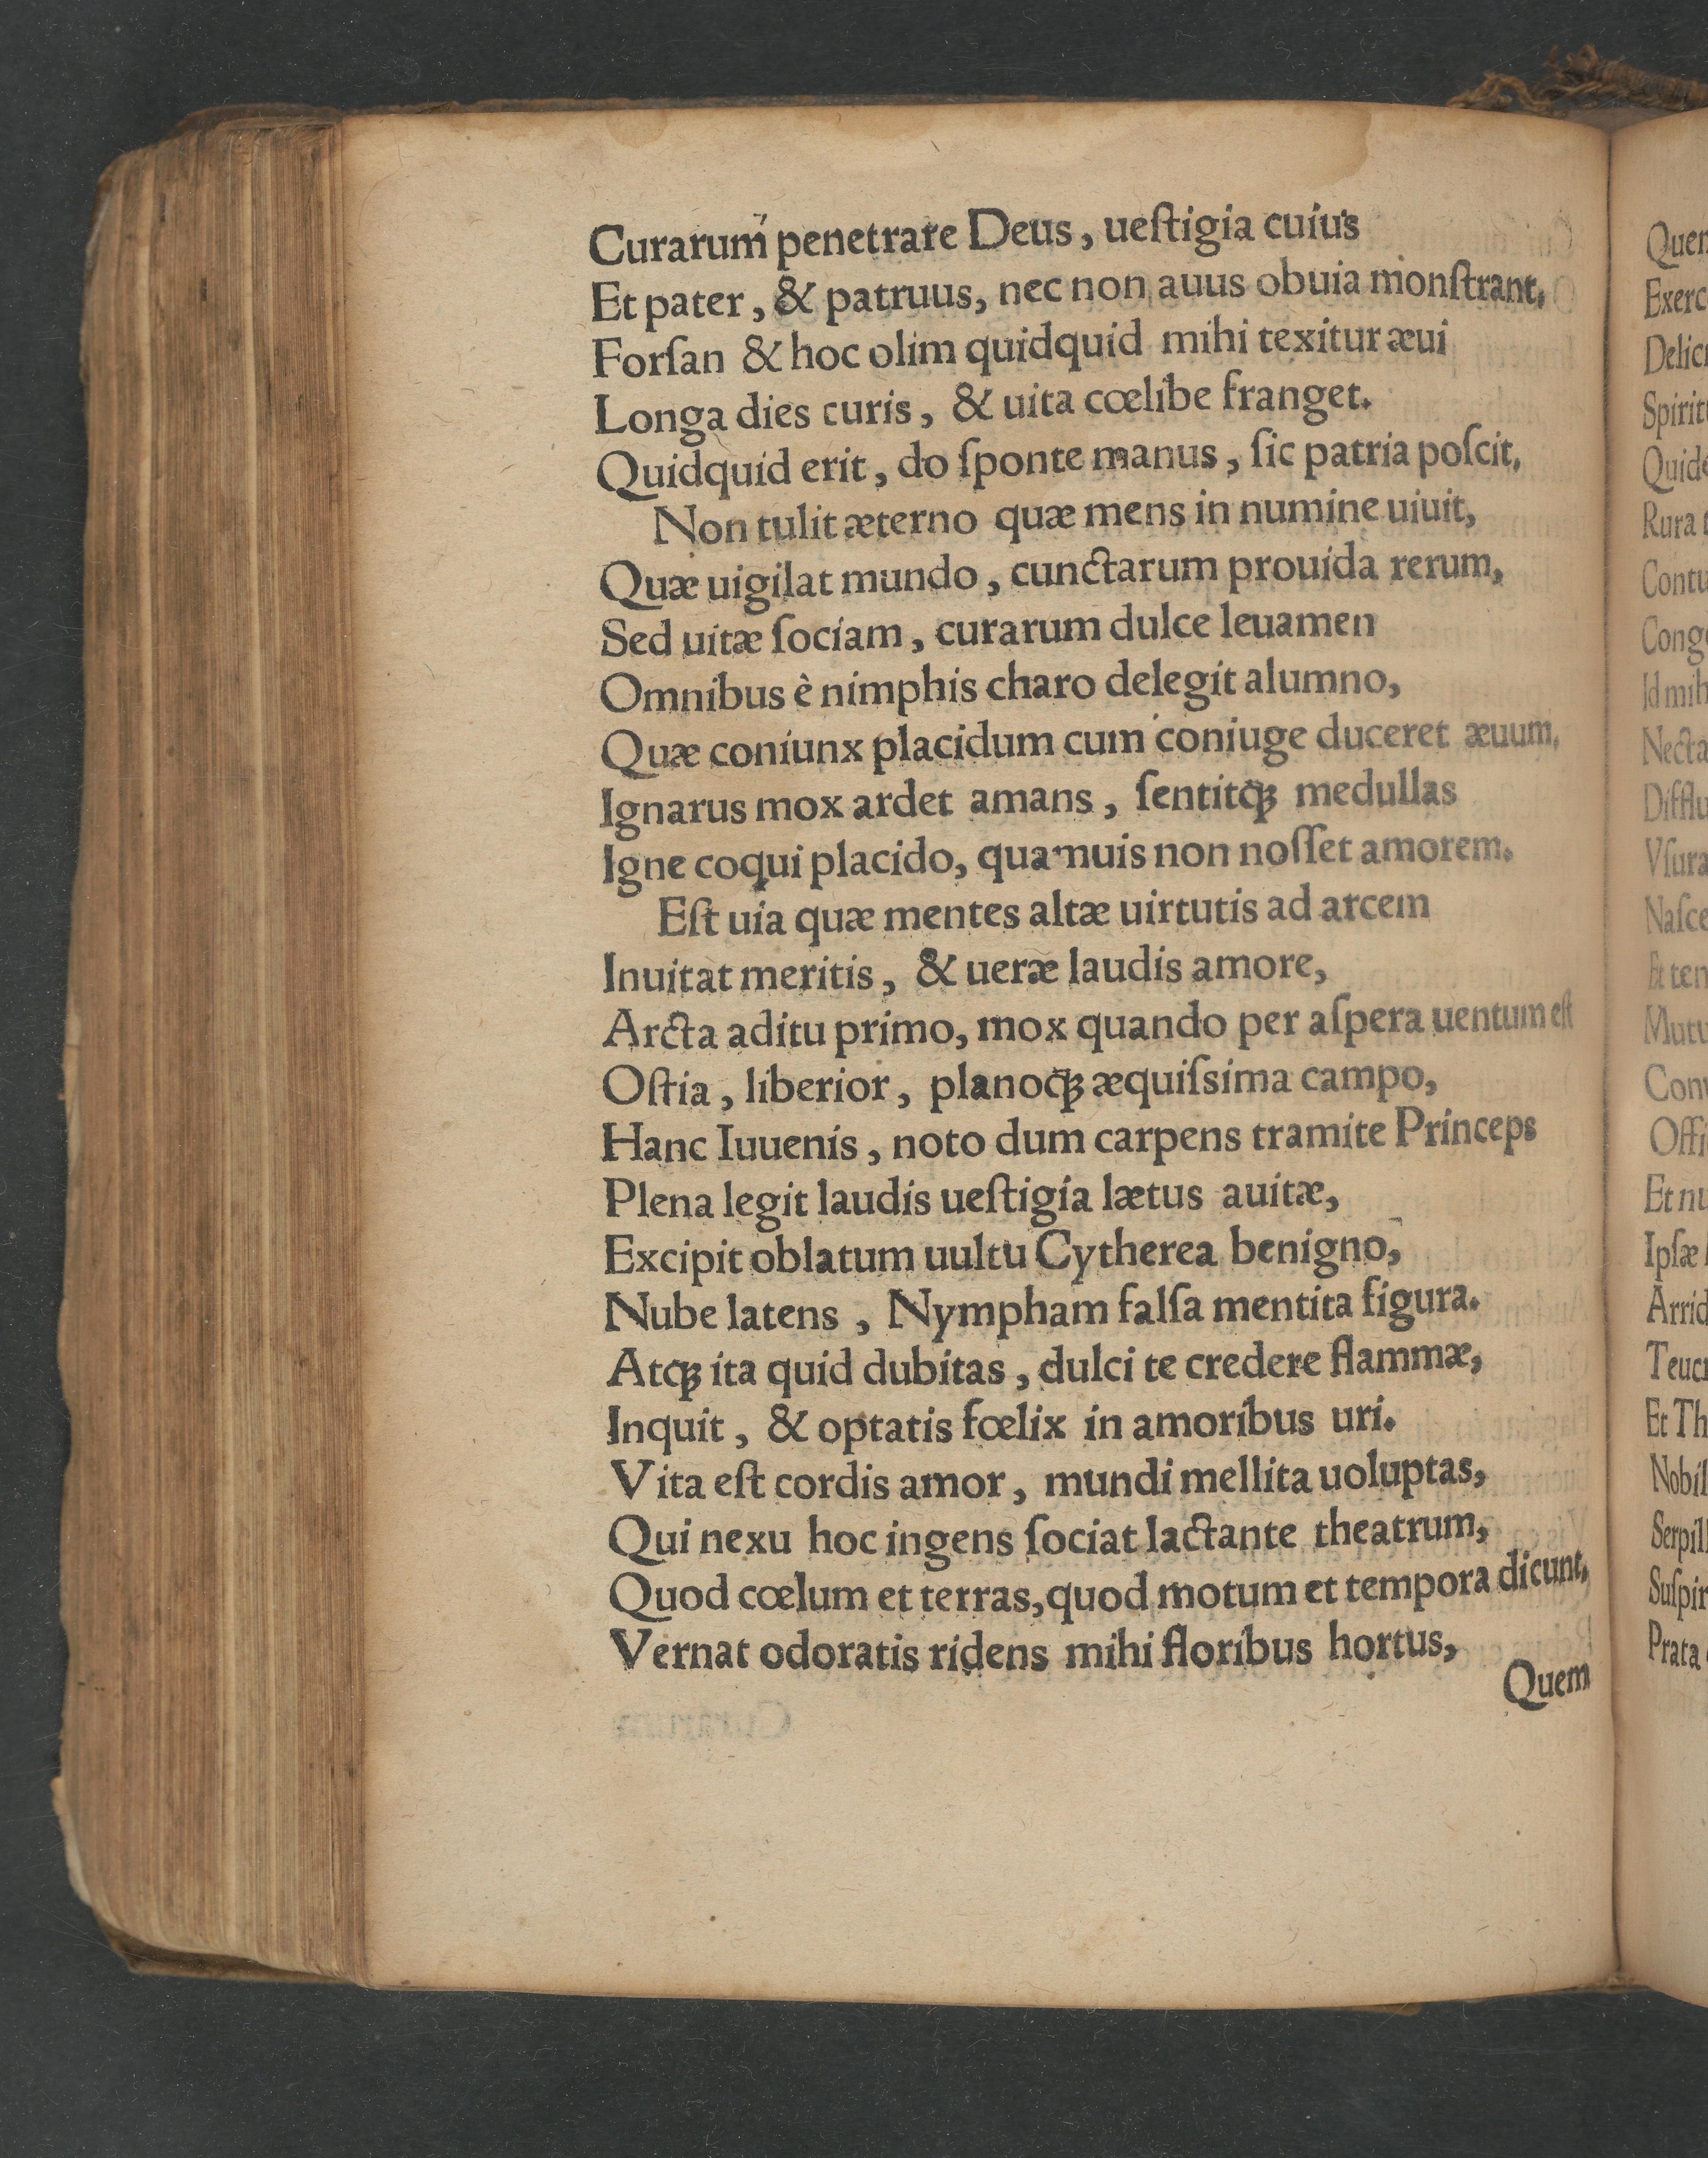 Curarum penetrare Deus, ueſtigia cuius
Et pater, & patruus, nec non auus obuia monſtrant,
Forſan & hoc olim quidquid mihi texitur æui
Longa dies curis, & uita cœlibe franget.
Quidquid erit, do ſponte manus, ſic patria poſcit,
Non tulit æterno quæ mens in numine uiuit,
Quæ uigilat mundo, cunctarum prouida rerum,
Sed uitæ ſociam, curarum dulce leuamen
Omnibus è nimphis charo delegit alumno,
Quæ coniunx placidum cum coniuge duceret æuum,
Ignarus mox ardet amans, ſentitꝗ́ꝫ medullas
Igne coqui placido, quamuis non noſſet amorem.
Eſt uia quæ mentes altæ uirtutis ad arcem
Inuitat meritis, & ueræ laudis amore,
Arcta aditu primo, mox quando per aſpera uentum eſt
Oſtia, liberior, planoꝗ́ꝫ æquiſsima campo,
Hanc Iuuenis, noto dum carpens tramite Princeps
Plena legit laudis ueſtigia lætus auitæ,
Excipit oblatum uultu Cytherea benigno,
Nube latens, Nympham falſa mentita figura.
Atꝗꝫ ita quid dubitas, dulci te credere flammæ,
Inquit, & optatis fœlix in amoribus uri.
Vita eſt cordis amor, mundi mellita uoluptas,
Qui nexu hoc ingens ſociat lactante theatrum,
Quod cœlum et terras, quod motum et tempora dicunt,
Vernat odoratis ridens mihi floribus hortus,
Quem